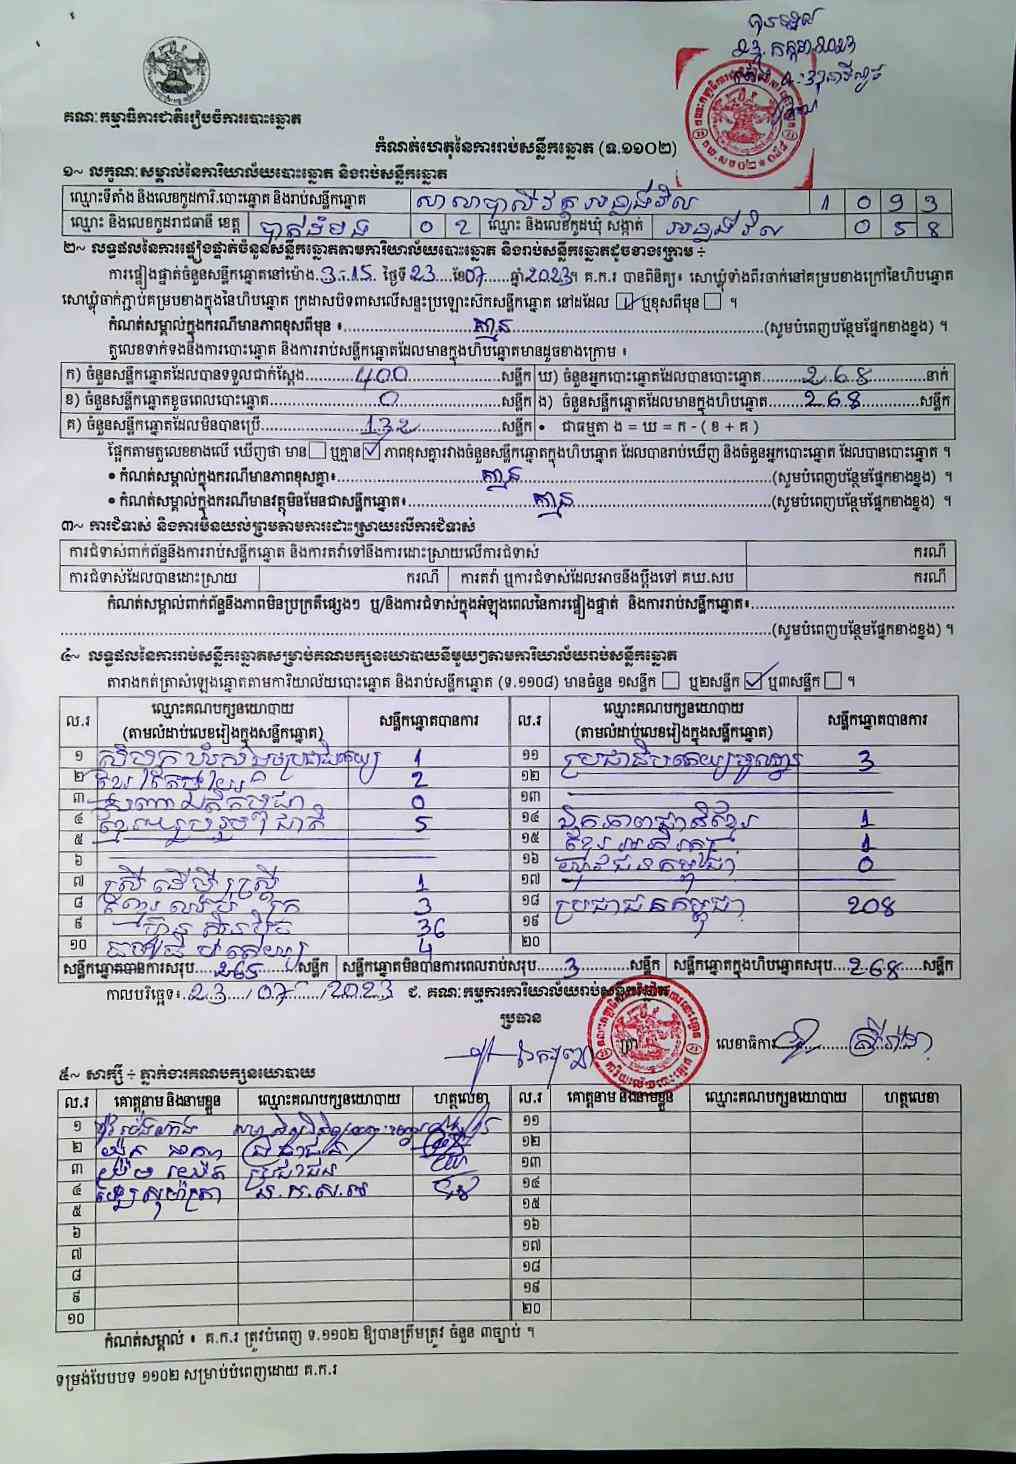 ២៣ កក្កដា ២០២៣
គណៈកម្មាធិការជាតិរៀបចំការបោះឆ្នោត
កំណត់ហេតុនៃការរាប់សន្លឹកឆ្នោត (ទ.១១០២)
១~ លក្ខណៈសម្គាល់នៃការិយាល័យបោះឆ្នោត និងរាប់សន្លឹកឆ្នោត
ឈ្មោះទីតាំង និងលេខកូដការិ.បោះឆ្នោត និងរាប់សន្លឹកឆ្នោត 1 0 9 3
ឈ្មោះ និងលេខកូដរាជធានី ខេត្ត បាត់ដំបង 0 2 ឈ្មោះ និងលេខកូដឃុំ សង្កាត់ 0 5 8
២~ លទ្ធផលនៃការផ្ទៀងផ្ទាត់ចំនួនសន្លឹកឆ្នោតតាមការិយាល័យបោះឆ្នោត និងរាប់សន្លឹកឆ្នោតដូចខាងក្រោម ÷
ការផ្ទៀងផ្ទាត់ចំនួនសន្លឹកឆ្នោតនៅម៉ោង 3:15 ថ្ងៃទី 23 ខែ 07 ឆ្នាំ 2023។ គ.ក.រ បានពិនិត្យ៖ សោឃ្លុំទាំងពីរចាក់នៅគម្របខាងក្រៅនៃហិបឆ្នោត
សោឃ្លុំចាក់ភ្ជាប់គម្របខាងក្នុងនៃហិបឆ្នោត ក្រដាសបិទពាសលើសន្ទះប្រឡោះស៊កសន្លឹកឆ្នោត នៅដដែល ☑ ឬខុសពីមុន ☐ ។
កំណត់សម្គាល់ក្នុងករណីមានភាពខុសពីមុន ៖ គ្មាន (សូមបំពេញបន្ថែមផ្នែកខាងខ្នង) ។
តួលេខទាក់ទងនឹងការបោះឆ្នោត និងការរាប់សន្លឹកឆ្នោតដែលមានក្នុងហិបឆ្នោតមានដូចខាងក្រោម ៖
ក) ចំនួនសន្លឹកឆ្នោតដែលបានទទួលជាក់ស្តែង 400 សន្លឹក ឃ) ចំនួនអ្នកបោះឆ្នោតដែលបានបោះឆ្នោត 268 នាក់
ខ) ចំនួនសន្លឹកឆ្នោតខូចពេលបោះឆ្នោត 0 សន្លឹក ង) ចំនួនសន្លឹកឆ្នោតដែលមានក្នុងហិបឆ្នោត 268 សន្លឹក
គ) ចំនួនសន្លឹកឆ្នោតដែលមិនបានប្រើ 132 សន្លឹក • ជាធម្មតា ង = ឃ = ក - ( ខ + គ )
ផ្អែកតាមតួលេខខាងលើ ឃើញថា មាន ☐ ឬគ្មាន ☑ ភាពខុសគ្នារវាងចំនួនសន្លឹកឆ្នោតក្នុងហិបឆ្នោត ដែលបានរាប់ឃើញ និងចំនួនអ្នកបោះឆ្នោត ដែលបានបោះឆ្នោត ។
• កំណត់សម្គាល់ក្នុងករណីមានភាពខុសគ្នា៖ គ្មាន (សូមបំពេញបន្ថែមផ្នែកខាងខ្នង) ។
• កំណត់សម្គាល់ក្នុងករណីមានវត្ថុមិនមែនជាសន្លឹកឆ្នោត៖ គ្មាន (សូមបំពេញបន្ថែមផ្នែកខាងខ្នង) ។
៣~ ការជំទាស់ និងការមិនយល់ព្រមតាមការដោះស្រាយលើការជំទាស់
ការជំទាស់ពាក់ព័ន្ធនឹងការរាប់សន្លឹកឆ្នោត និងការតវ៉ាទៅនឹងការដោះស្រាយលើការជំទាស់ ករណី
ការជំទាស់ដែលបានដោះស្រាយ ករណី ការតវ៉ា ឬការជំទាស់ដែលអាចនឹងប្តឹងទៅ គឃ.សប ករណី
កំណត់សម្គាល់ពាក់ព័ន្ធនឹងភាពមិនប្រក្រតីផ្សេងៗ ឬ/និងការជំទាស់ក្នុងអំឡុងពេលនៃការផ្ទៀងផ្ទាត់ និងការរាប់សន្លឹកឆ្នោត៖
(សូមបំពេញបន្ថែមផ្នែកខាងខ្នង) ។
៤~ លទ្ធផលនៃការរាប់សន្លឹកឆ្នោតសម្រាប់គណបក្សនយោបាយនីមួយៗតាមការិយាល័យរាប់សន្លឹកឆ្នោត
តារាងកត់ត្រាសំឡេងឆ្នោតតាមការិយាល័យបោះឆ្នោត និងរាប់សន្លឹកឆ្នោត (ទ.១១០៨) មានចំនួន ១សន្លឹក ☐ ឬ២សន្លឹក ☑ ឬ៣សន្លឹក ☐ ។
ល.រ ឈ្មោះគណបក្សនយោបាយ (តាមលំដាប់លេខរៀងក្នុងសន្លឹកឆ្នោត) សន្លឹកឆ្នោតបានការ ល.រ ឈ្មោះគណបក្សនយោបាយ (តាមលំដាប់លេខរៀងក្នុងសន្លឹកឆ្នោត) សន្លឹកឆ្នោតបានការ
១ 1 ១១ 3
២ 2 ១២
៣ 0 ១៣
៤ ខ្មែររួបរួមជាតិ 5 ១៤ ឯកភាពជាតិខ្មែរ 1
៥ ១៥ ខ្មែរអភិរក្ស 1
៦ ១៦ យុវជនកម្ពុជា 0
៧ ស្រ្តីដើម្បីស្រ្តី 1 ១៧
៨ 3 ១៨ ប្រជាជនកម្ពុជា 208
៩ 36 ១៩
១០ 4 ២០
សន្លឹកឆ្នោតបានការសរុប 265 សន្លឹក សន្លឹកឆ្នោតមិនបានការពេលរាប់សរុប 3 សន្លឹក សន្លឹកឆ្នោតក្នុងហិបឆ្នោតសរុប 268 សន្លឹក
កាលបរិច្ឆេទ៖ 23/07/2023 ជ. គណៈកម្មការការិយាល័យរាប់សន្លឹកឆ្នោត
ប្រធាន
លេខាធិការ
៥~ សាក្សី ÷ ភ្នាក់ងារគណបក្សនយោបាយ
ល.រ គោត្តនាម និងនាមខ្លួន ឈ្មោះគណបក្សនយោបាយ ហត្ថលេខា ល.រ គោត្តនាម និងនាមខ្លួន ឈ្មោះគណបក្សនយោបាយ ហត្ថលេខា
១ ១១
២ ១២
៣ ប្រជាជន ១៣
៤ ១៤
៥ ១៥
៦ ១៦
៧ ១៧
៨ ១៨
៩ ១៩
១០ ២០
កំណត់សម្គាល់ ៖ គ.ក.រ ត្រូវបំពេញ ទ.១១០២ ឱ្យបានត្រឹមត្រូវ ចំនួន ៣ច្បាប់ ។
ទម្រង់បែបបទ ១១០២ សម្រាប់បំពេញដោយ គ.ក.រ